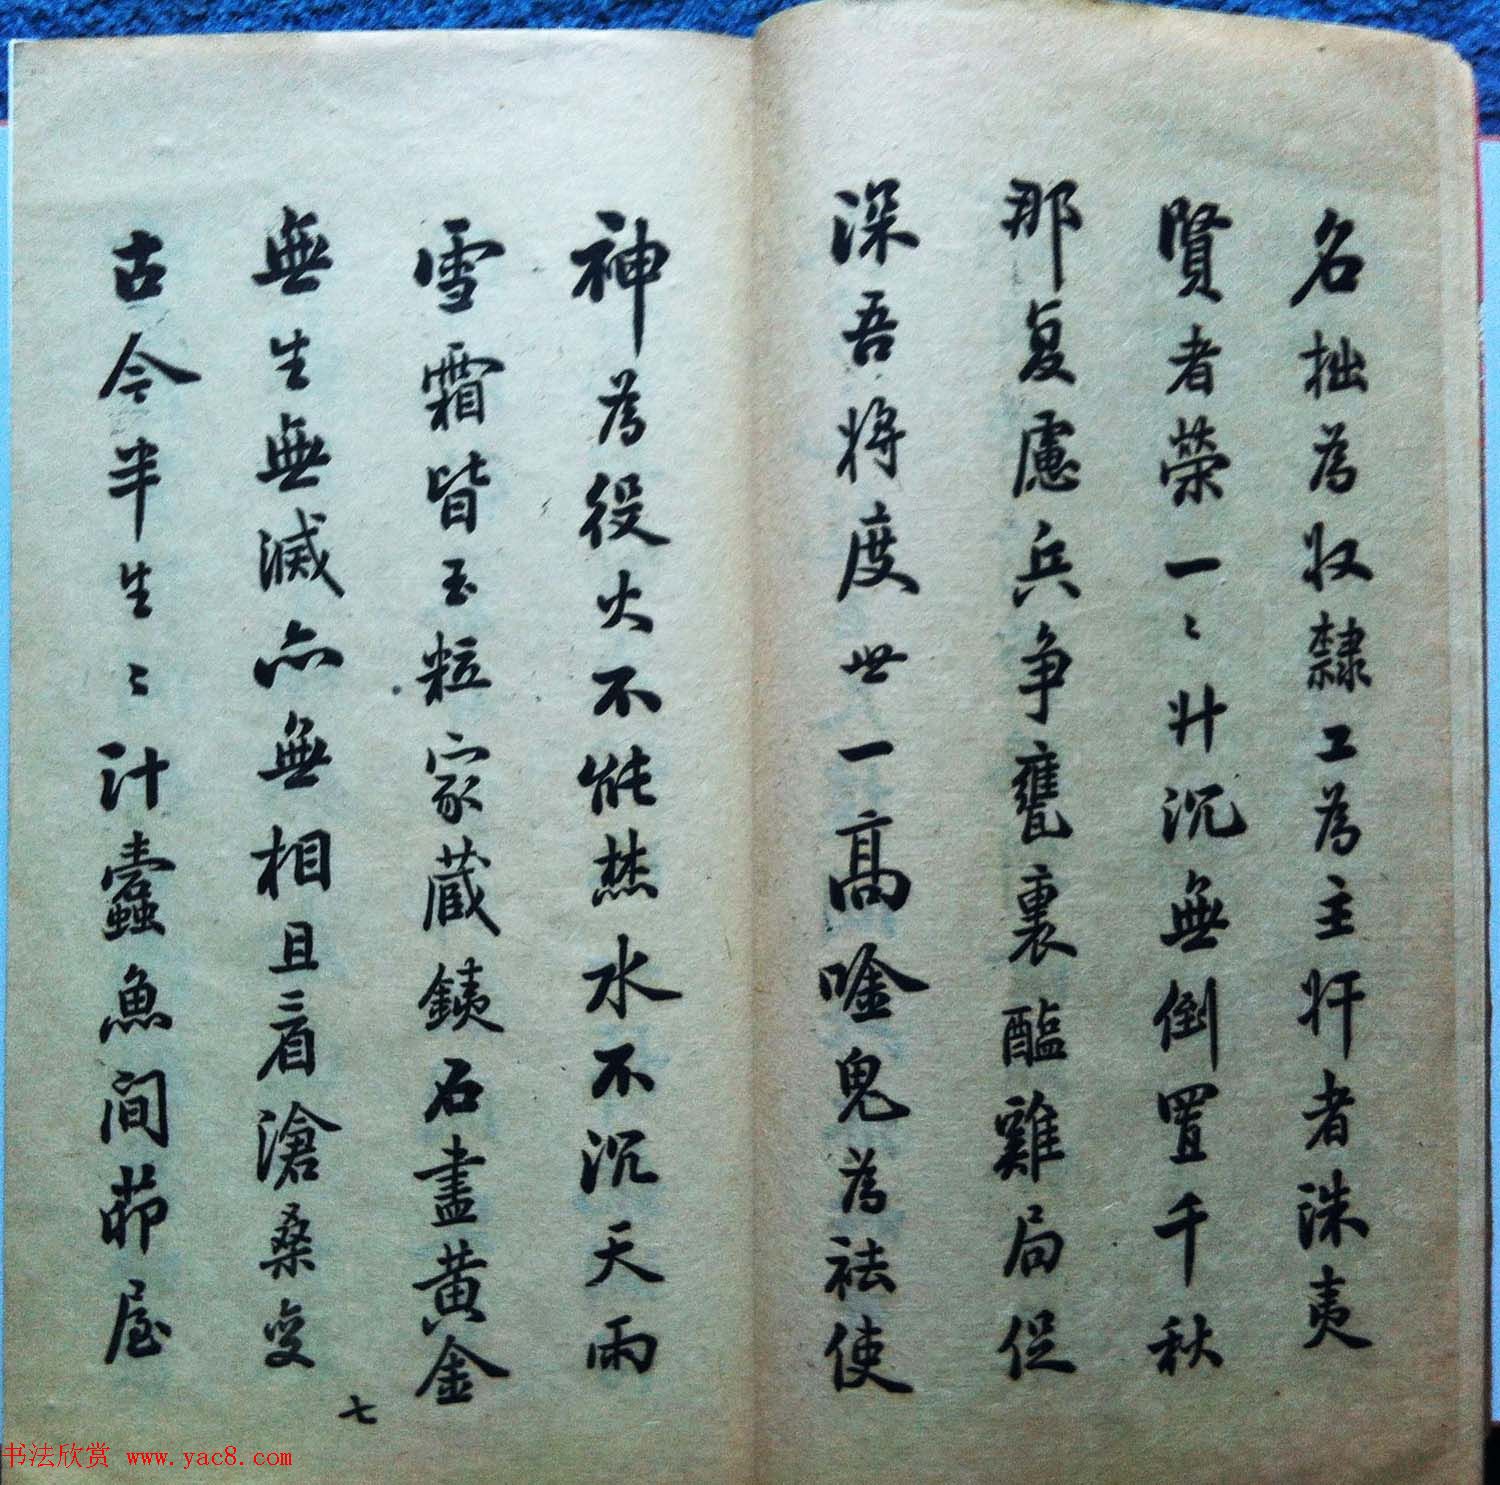 名拙为収隸工为主奸者洙夷
賢者榮一〻升沉無倒置千秋
那复慮兵争甕裏醯雞局促
深吾将度世一高唫鬼为祛使
神为役火不能焦水不沉天雨
雪霜皆玉粒家蔵銕石盡黄金
無生無滅亦無相且看滄桑变
古今半生〻計蠹魚间茆屋
七
书法欣赏 www.yac8.com